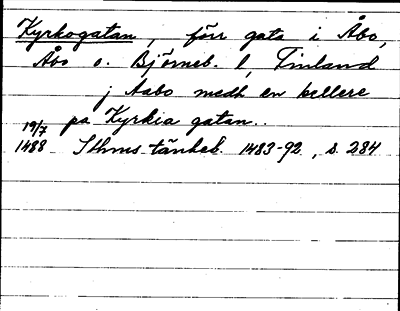 Kyrkogatan, förr gata i Åbo,
Åbo o. Björneb. l, Finland
j Aabo medh en kellere
pa Kyrkia gatan..
19/7
1488 Sthms tänkeb. 1483-92, s. 284